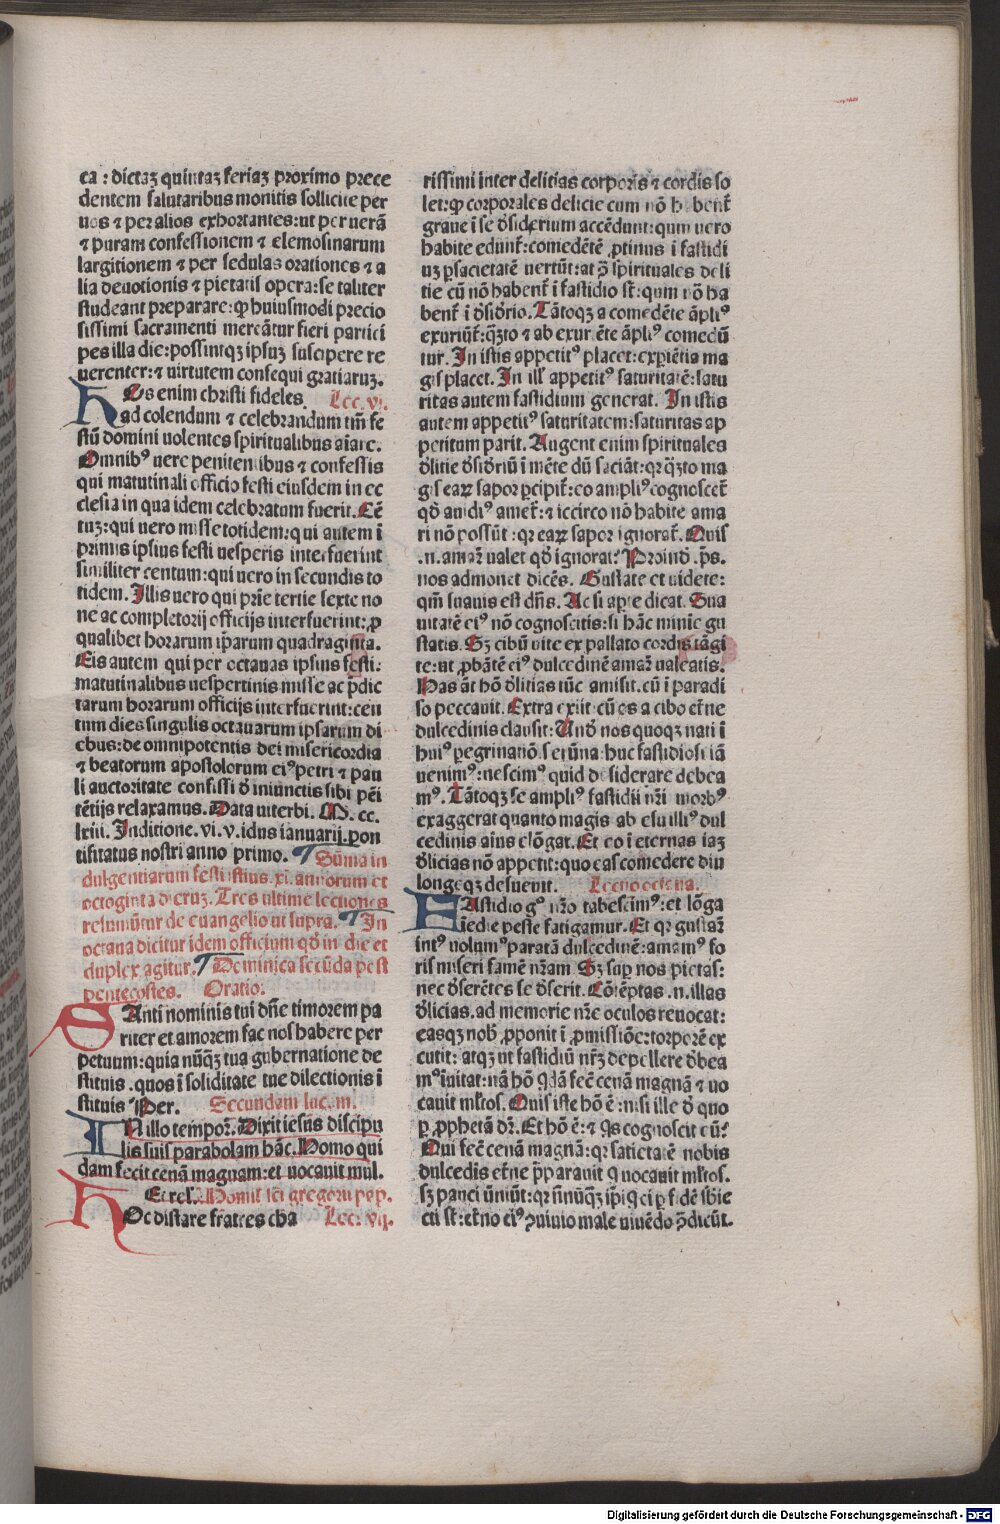 ca : dictaꝫ quintaꝫ feriaꝫ proximo prece
dentem salutaribus monitis sollicite per
uos ⁊ per alios exhortantes: ut per uerā
⁊ puram confessionem ⁊ elemosinarum
largitionem ⁊ per sedulas orationes ⁊ a
lia deuotionis ⁊ pietatis opera: se taliter
studeant preparare: ꝙ huiusmodi precio
sissimi sacramenti mereātur fieri partici
pes illa die: possintqꝫ ipsuꝫ suscipere re
uerenter: ⁊ uirtutem consequi gratiaruꝫ.
HOs enim christi fideles. Lec. vi.
ad colendum ⁊ celebrandum tm̄ fe
stū domini uolentes spiritualibus aīare.
Omnibꝰ uere penitentibus ⁊ confessis
qui matutinali officio festi eiusdem in ec
clesia in qua idem celebratum fuerit. Cē
tuꝫ: qui uero misse totidem: qui autem ī
primis ipsius festi uesperis interfuerint
similiter centum: qui uero in secundis to
tidem. Illis uero qui prīe tertie sexte no
ne ac completorij officijs interfuerint: ꝓ
qualibet horarum ip̄arum quadraginta.
Eis autem qui per octauas ipsius festi:
matutinalibus uespertinis misse ac p̄dic
tarum horarum officijs interfuerint: cen
tum dies singulis octauarum ipsarum di
ebus: de omnipotentis dei misericordia
⁊ beatorum apostolorum eiꝰ petri ⁊ pau
li auctoritate confisi d̄ iniunctis sibi pēi
tētijs relaxamus. Data uiterbi. M. cc.
lxiii. Inditione. vi. v. idus ianuarij. pon
tificatus nostri anno primo. ¶ Sūma in
dulgentiarum festi istius. xi. annorum et
octoginta dieruꝫ. Tres ultime lectiones
resumūtur de euangelio ut supra. ¶ In
octaua dicitur idem officium qd̄ in die et
duplex agitur. ¶ Dominica secūda post
pentecostes. Oratio.
SAnti nominis tui dn̄e timorem pa
riter et amorem fac nos habere per
petuum: quia nūqꝫ tua gubernatione de
stituis. quos ī soliditate tue dilectionis ī
stituis Per. Secundam lucam.
IN illo tempoꝝ. Dixit iesus discipu
lis suis parabolam hāc. Homo qui
dam fecit cenā magnam: et uocauit mul.
Et rel. Homil. sci gregorii pap.
HOc distare fratres cha Lec. vij.
rissimi inter delitias corporis ⁊ cordis so
let: ꝙ corporales delicie cum nō habent̄
graue ī se d̄siderium accēdunt: qum uero
habite edunt̄: comedētē ꝓtinus ī fastidi
uꝫ ꝑ sacietatē uertūt: at ꝯ̄ spirituales deli
tie cū nō habent̄ ī fastidio st̄: qum uō ha
bent̄ ī d̄sid̄rio. Tātoqꝫ a comedēte āpliꝰ
exuriūt̄: qꝫto ⁊ ab exuriēte āpliꝰ comedū
tur. In istis appetitꝰ placet: expiētia ma
gis placet. In ill̄ appetitꝰ saturitatē: satu
ritas autem fastidium generat. In istis
autem appetitꝰ saturitatem: saturitas ap
petitum parit. Augent enim spirituales
d̄litie d̄sid̄riū ī mēte dū saciāt: qꝛ qꝫto ma
gis eaꝝ sapor ꝑcipit̄: eo ampliꝰ cognoscet̄
qd̄ auidiꝰ amet̄: ⁊ iccirco nō habite ama
ri nō possūt: qꝛ eaꝝ sapor ignorat̄. Quis
.n. amaꝝ ualet qd̄ ignorat? Proind̄. ps̄.
nos admonet dicēs. Gustate et uidete:
qm̄ suauis est dn̄s. Ac si apte dicat. Sua
uitatē eiꝰ nō cognoscitis: si hāc minie gu
statis. Sꝫ cibū uite ex pallato cordis tāgi
te: ut ꝓbātē eiꝰ dulcedinē amaꝝ ualeatis.
Has āt hō d̄litias tūc amisit. cū ī paradi
so peccauit. Extra exiit cū os a cibo et̄ne
dulcedinis clausit: Und̄ nos quoqꝫ nati ī
huiꝰ pegrinatiōis erūna: huc fastidiosi iā
uenimꝰ: nescimꝰ quid desiderare debea
mꝰ. Tātoqꝫ se ampliꝰ fastidii nr̄i morbꝰ
exaggerat quanto magis ab esu illiꝰ dul
cedinis aius elōgat. Et eo ī eternas iaꝫ
d̄licias nō appetit: quo eas comedere diu
longeqꝫ desueuit. Lectio octaua.
FAstidio gͦ nr̄o tabescimꝰ: et lōga
īedie peste fatigamur. Et qꝛ gustaꝝ
intꝰ uolumꝰ paratā dulcedinē: amamꝰ fo
ris miseri famē nr̄am Sꝫ suꝑ nos pietas:
nec d̄serētes se d̄serit. Cōtēptas .n. illas
d̄licias. ad memorie nr̄e oculos reuocat:
easqꝫ nob̄ ꝓponit ī ꝓmissiōe: torporē ex
cutit: atqꝫ ut fastidiū nr̄ꝫ depellere d̄bea
mꝰ īuitat: nā hō qdā fec̄ cenā magnā ⁊ uo
cauit ml̄tos. Quis iste hō ē: nisi ille d̄ quo
ꝑ ꝓphetā dr̄. Et hō ē: ⁊ qs cognoscit eū?
Qui fec̄ cenā magnā: qꝛ sacietatē nobis
dulcedis et̄ne p̄parauit qͥ uocauit ml̄tos.
sꝫ pauci ūniūt: qꝛ nūnūqꝫ ip̄i qi ei ꝑ fidē sb̄ie
cti st̄: et̄no eiꝰ ꝯuiuio male uiuēdo ꝯ̄dicūt.
Digitalisierung gefördert durch die Deutsche Forschungsgemeinschaft - DFG